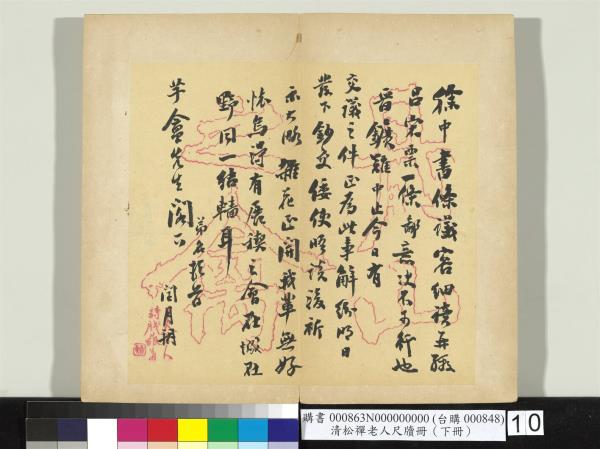 徐中書條議容細讀再繳
呂宋票一條部意決不可行也
晉鑛難中止今日有
交議之件正為此事解紛明日
發下鈔交倭使晤談後祈
示大略雜花正開我輩無好
懷烏得有展禊之會在城社
野一結轖耳
弟名頓首
盦先生閣下
閏月朔
購書 000863N000000000 (台購 000848)
清松禪老人尺牘冊（下冊）
10